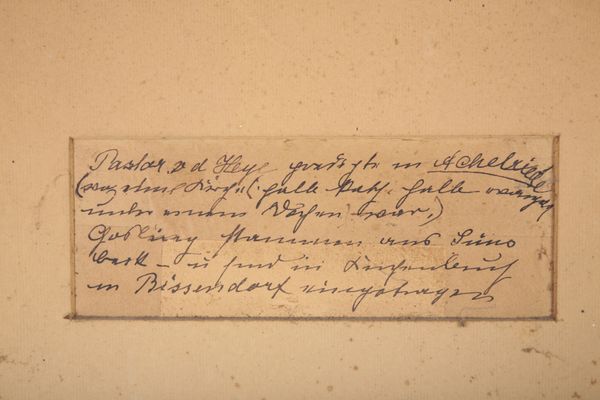 Pastor v d Heye predigte in Achelriede
(wo eine Kirche (halb kath. halb evang.
unter einem Dache war.)
Gosling stammen aus Süns
beck – u sind in Kirchenbuch
in Bissendorf eingetragen